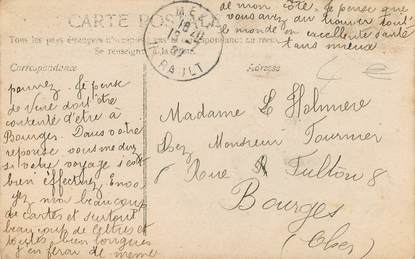 CARTE POSTALE
Tous les pays étrangers n'acceptent pas la correspondance au recto
Se renseigner à la Poste
de mon côté. Je pense que
vous avez du trouver tout
le monde en excellente santé
tans mieux
MEZE
18 40
HERAULT
Correspondance
Adresse
pourrez. Je pense
de vivre doit être
contente d'être à
Bourges. Dans votre
reponse vous me direz
si votre voyage s'est
bien effectuez. Envo
yez moi beaucoup
de cartes et surtout
beaucoup de lettres et
toutes bien longues
j'en ferai de meme
Madame L Holmière
Chez Monsieur Tournier
Rue Fulton 8
Bourges
(Cher)